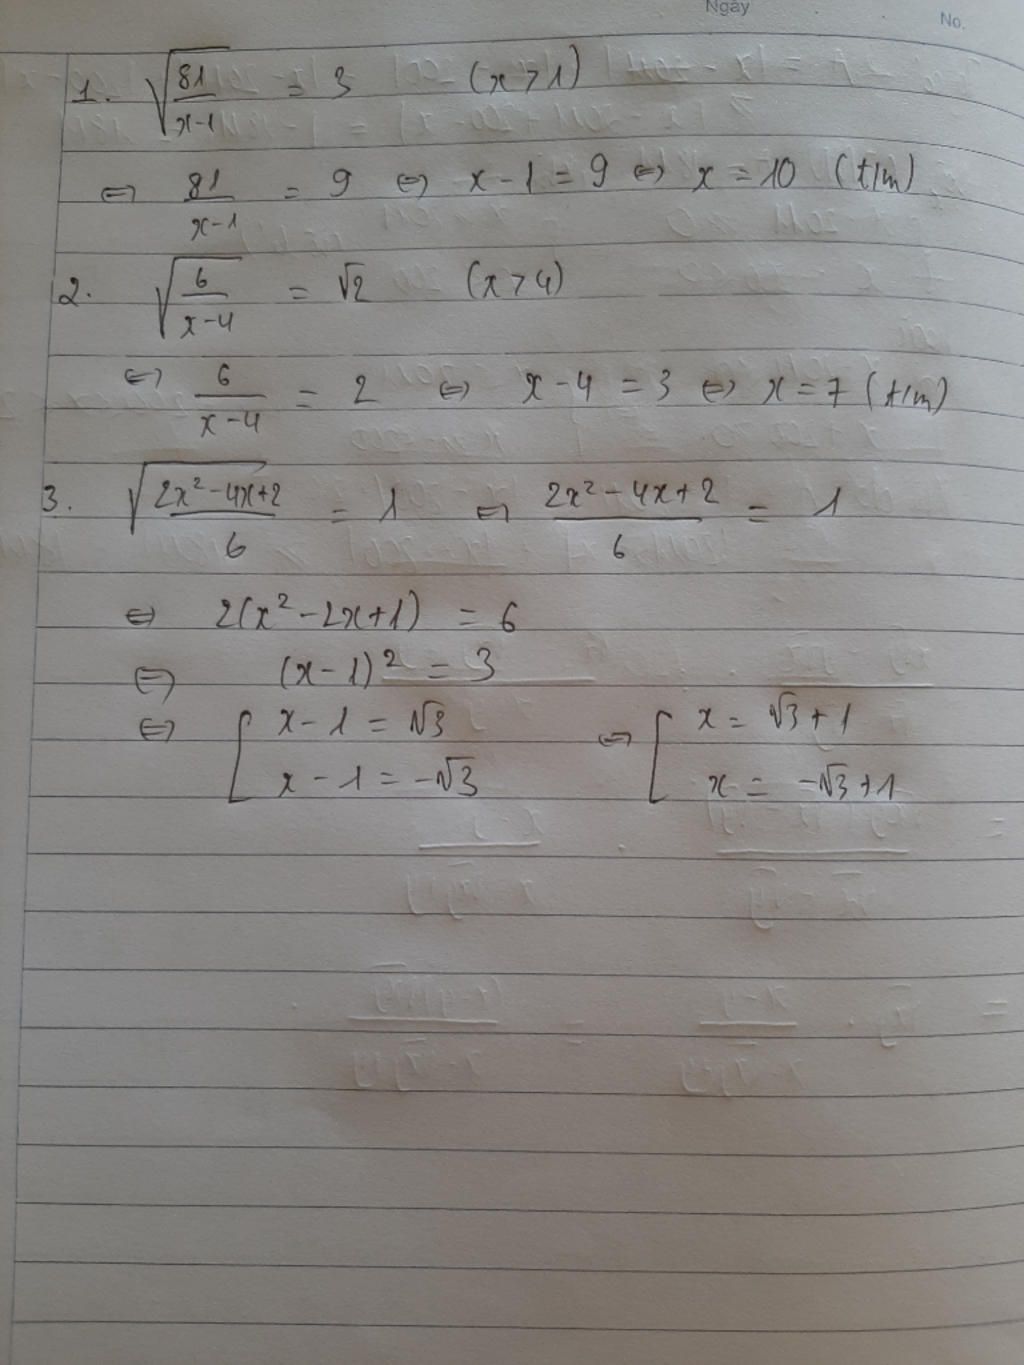 Ngày
No.
1. √(81/(x-1)) = 3 (x > 1)
⇔ 81/(x-1) = 9 ⇔ x - 1 = 9 ⇔ x = 10 (t/m)
2. √(6/(x-4)) = √2 (x > 4)
⇔ 6/(x-4) = 2 ⇔ x - 4 = 3 ⇔ x = 7 (t/m)
3. √((2x² - 4x + 2)/6) = 1 ⇔ (2x² - 4x + 2)/6 = 1
⇔ 2(x² - 2x + 1) = 6
⇔ (x - 1)² = 3
⇔ [ x - 1 = √3 ⇔ [ x = √3 + 1
x - 1 = -√3 x = -√3 + 1